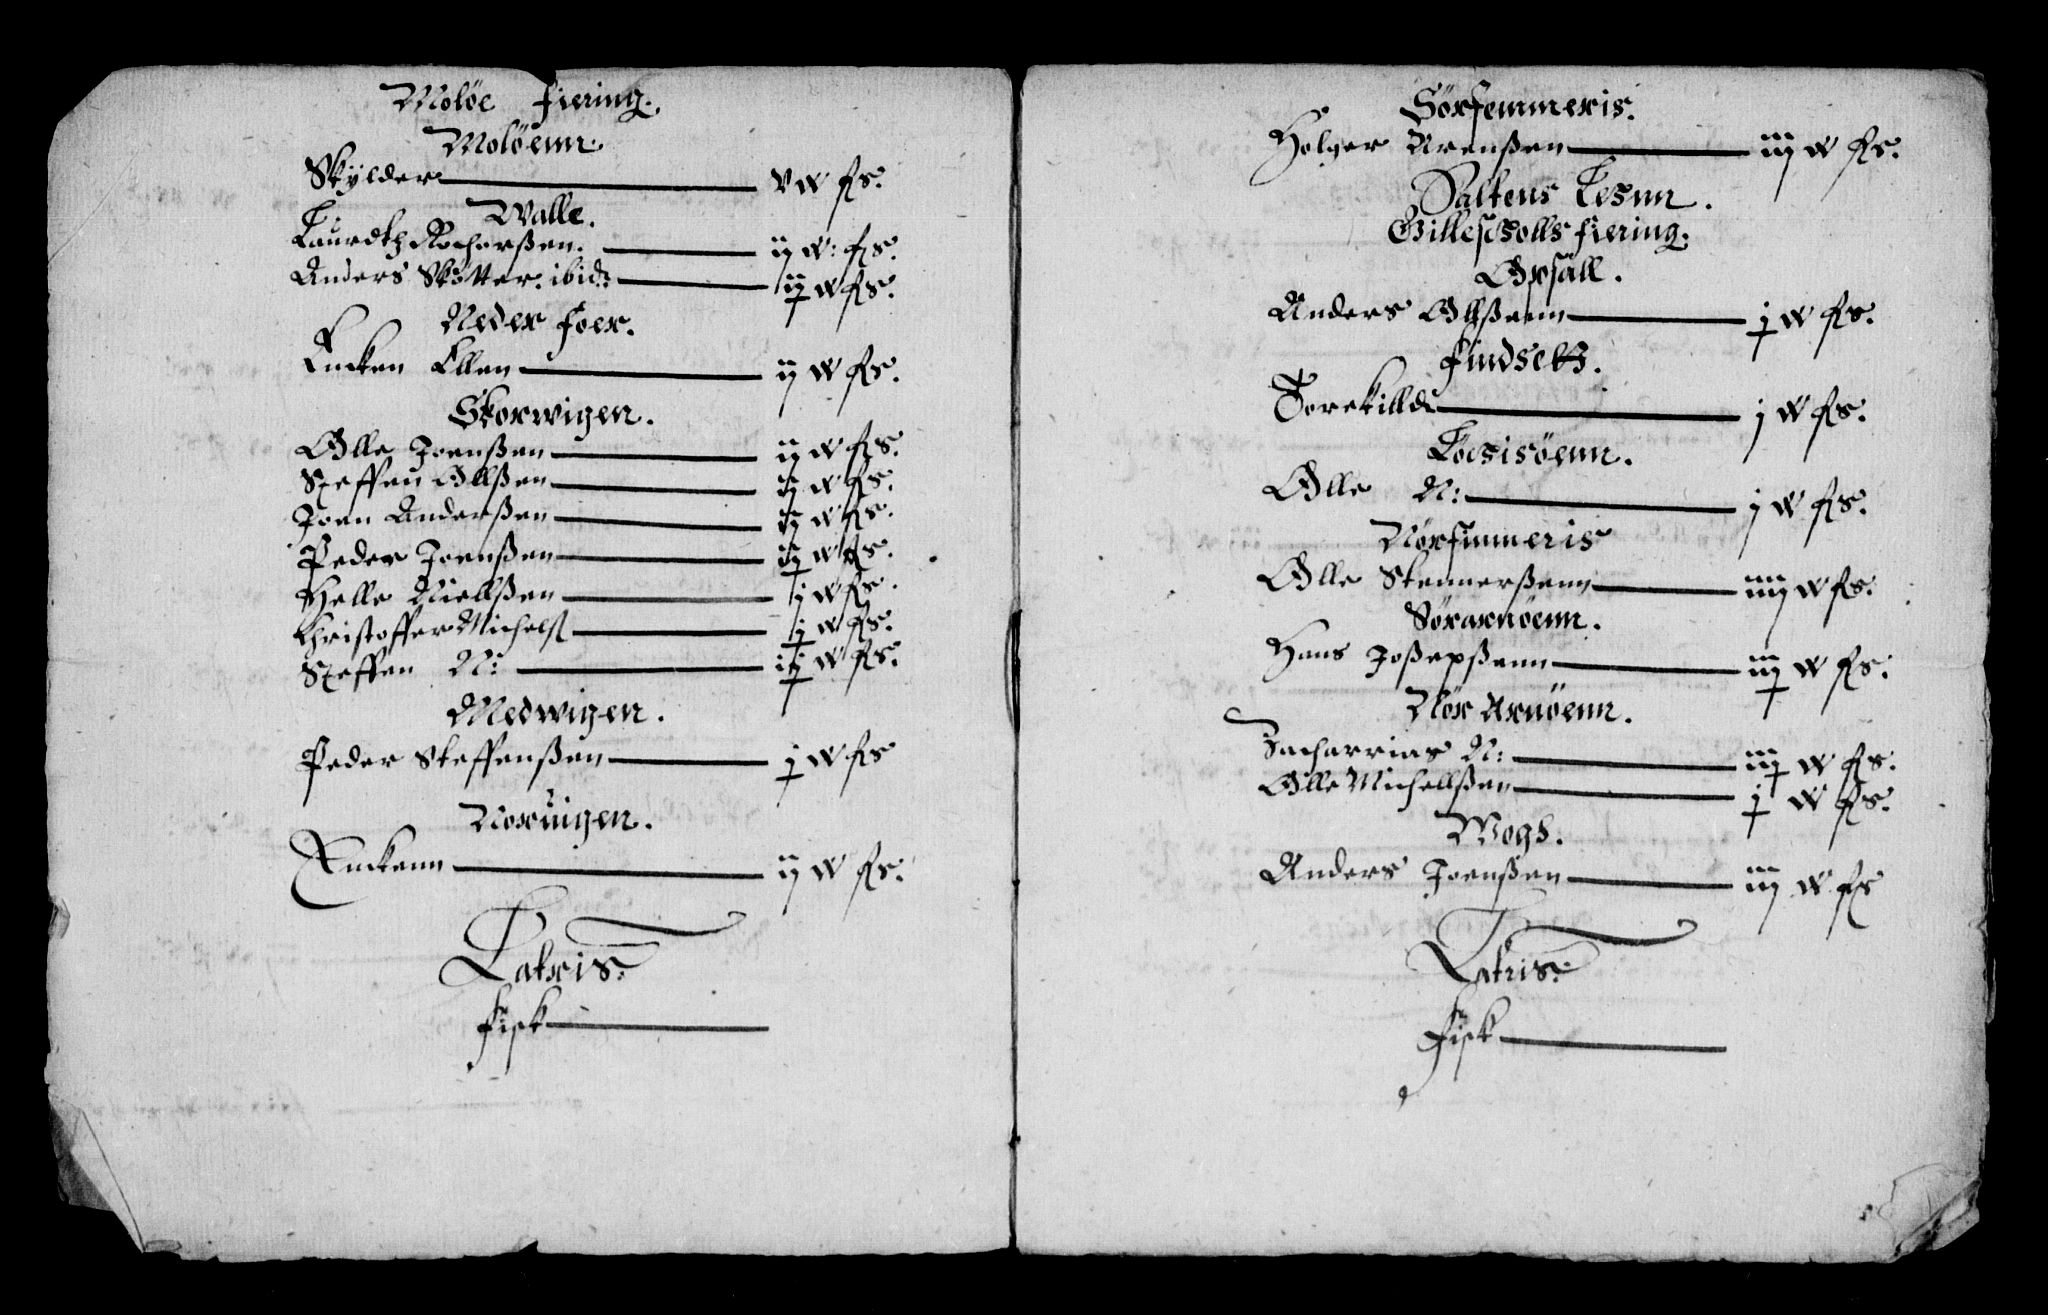 Moløe fiering.
Moløenn.
Skylder v w fs.
Walle.
Lauridtz Rocharßen. ij w: fs.
Anders Skøtter. ibid: ij w fs.
Neder foer.
Encken Ellen ij w fs.
Skorwigen.
Olle Joenßen ij w fs.
Steffen Ollßen ij w fs.
Joen Anderßen ij w fs.
Peder Joenßen ij w fs.
Helle Niellßen j w fs.
Christoffer Michelß j w fs.
Steffen N: ij w fs.
Medwigen.
Peder Steffenßen j w fs
Noruigen.
Enckenn ij w fs.
Latris.
fisk
Sørfemmeris.
Holger Arenßen iij w fs.
Saltens Lesnn.
Gillescholls fiering.
Opsall.
Anders Ollßenn j w fs.
findseth.
Torekilld j w fs.
Løesisøenn.
Olle N: j w fs.
Nørfinmeris
Olle Stennerßenn iiij w fs.
Sørarnøenn.
Hans Joßepßenn iij w fs.
Nør Arnøenn.
Zacharrias N: iij w fs.
Olle Michellßen j w fs.
Wogh.
Anders Joenßen iij w fs
Latris.
fisk